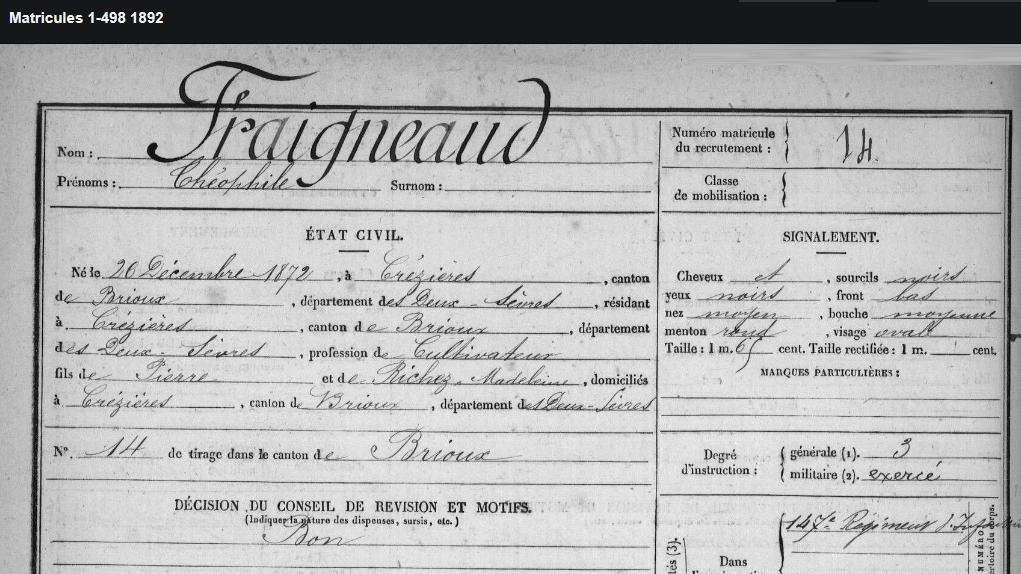 Matricules 1-498 1892
Fraigneaud
Nom :
Prénoms : Théophile Surnom :
Numéro matricule
du recrutement : 14.
Classe
de mobilisation :
ÉTAT CIVIL.
Né le 26 Décembre 1872, à Crézières, canton
de Brioux, département des Deux-Sèvres, résidant
à Crézières, canton de Brioux, département
des Deux-Sèvres, profession de Cultivateur
fils de Pierre et de Richez Madeleine, domiciliés
à Crézières, canton de Brioux, département des Deux-Sèvres
N°. 14 de tirage dans le canton de Brioux
DÉCISION DU CONSEIL DE REVISION ET MOTIFS.
(Indiquer la nature des dispenses, sursis, etc.)
Bon
SIGNALEMENT.
Cheveux et, sourcils noirs
yeux noirs, front bas
nez moyen, bouche moyenne
menton rond, visage oval
Taille : 1 m. 65 cent. Taille rectifiée : 1 m. cent.
MARQUES PARTICULIÈRES :
Degré
d'instruction :
générale (1). 3
militaire (2). exercé
147e Régiment d'Infanterie
Dans
NUMÉRO
répertoire du corps.